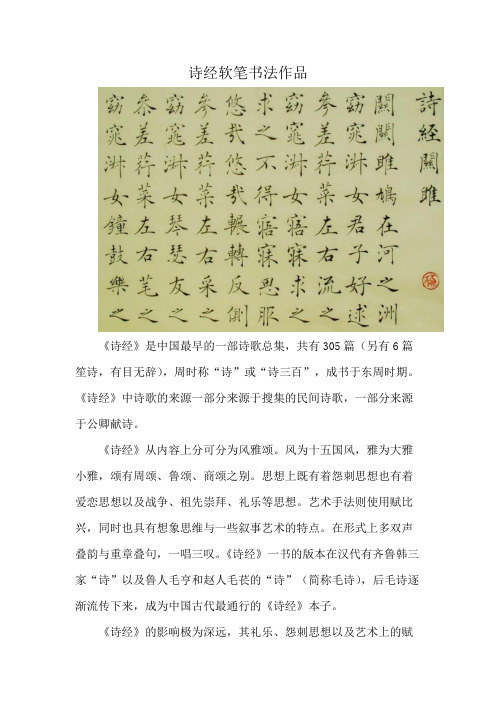 诗经软笔书法作品
詩經關雎
關關雎鳩在河之洲
窈窕淑女君子好逑
參差荇菜左右流之
窈窕淑女寤寐求之
求之不得寤寐思服
悠哉悠哉輾轉反側
參差荇菜左右采之
窈窕淑女琴瑟友之
參差荇菜左右芼之
窈窕淑女鐘鼓樂之
《诗经》是中国最早的一部诗歌总集，共有305篇（另有6篇
笙诗，有目无辞），周时称“诗”或“诗三百”，成书于东周时期。
《诗经》中诗歌的来源一部分来源于搜集的民间诗歌，一部分来源
于公卿献诗。
《诗经》从内容上分可分为风雅颂。风为十五国风，雅为大雅
小雅，颂有周颂、鲁颂、商颂之别。思想上既有着怨刺思想也有着
爱恋思想以及战争、祖先崇拜、礼乐等思想。艺术手法则使用赋比
兴，同时也具有想象思维与一些叙事艺术的特点。在形式上多双声
叠韵与重章叠句，一唱三叹。《诗经》一书的版本在汉代有齐鲁韩三
家“诗”以及鲁人毛亨和赵人毛苌的“诗”（简称毛诗），后毛诗逐
渐流传下来，成为中国古代最通行的《诗经》本子。
《诗经》的影响极为深远，其礼乐、怨刺思想以及艺术上的赋